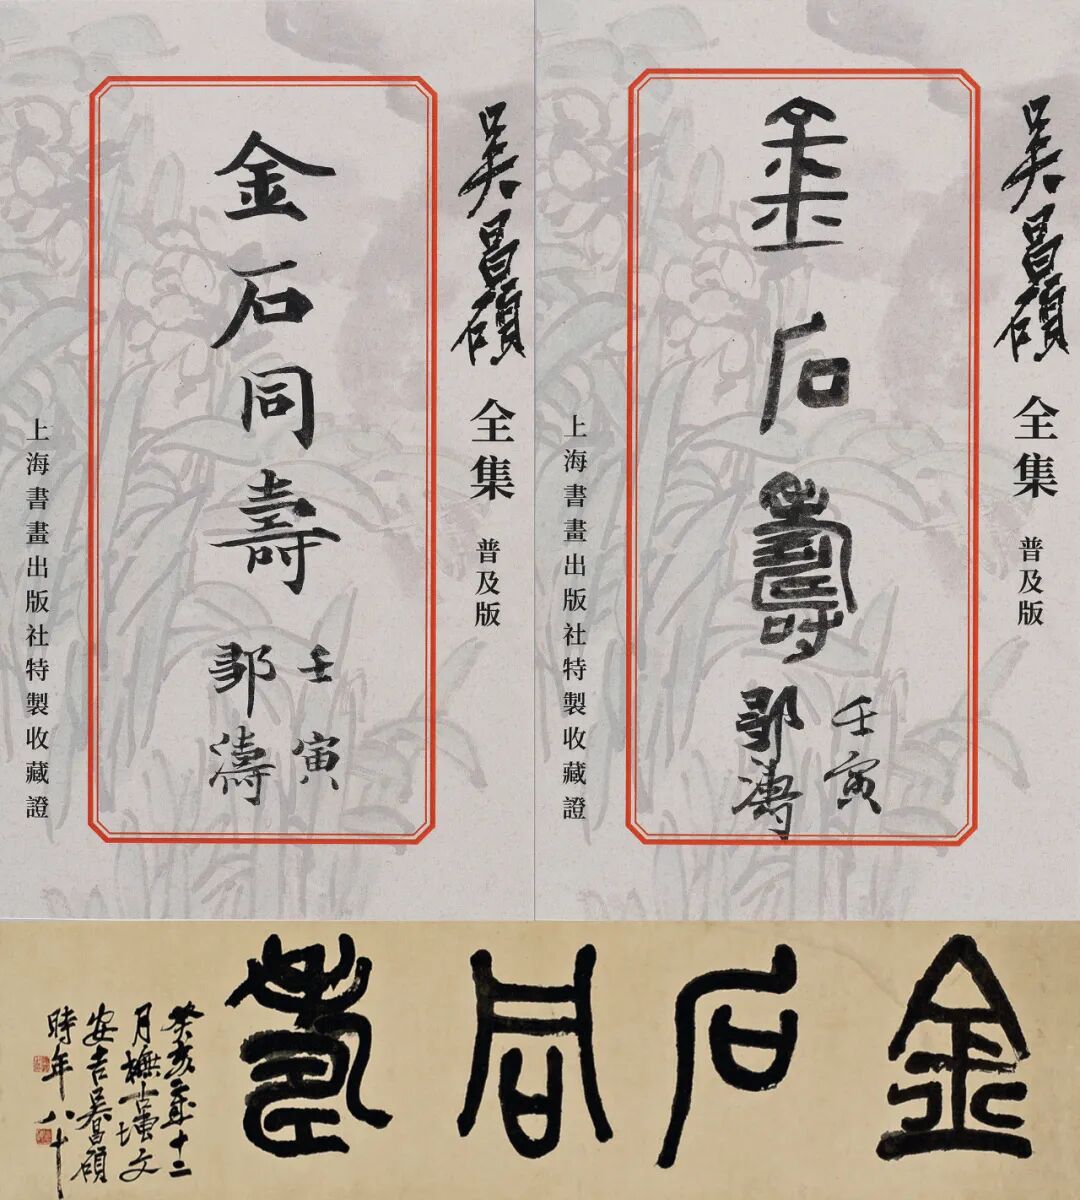 吳昌碩 全集 普及版
金石同壽
壬寅
鄒濤
上海書畫出版社特製收藏證
吳昌碩 全集 普及版
金石壽
壬寅
鄒濤
上海書畫出版社特製收藏證
金石同壽
癸亥歲十二
月橅古文
安吉吳昌碩
時年八十